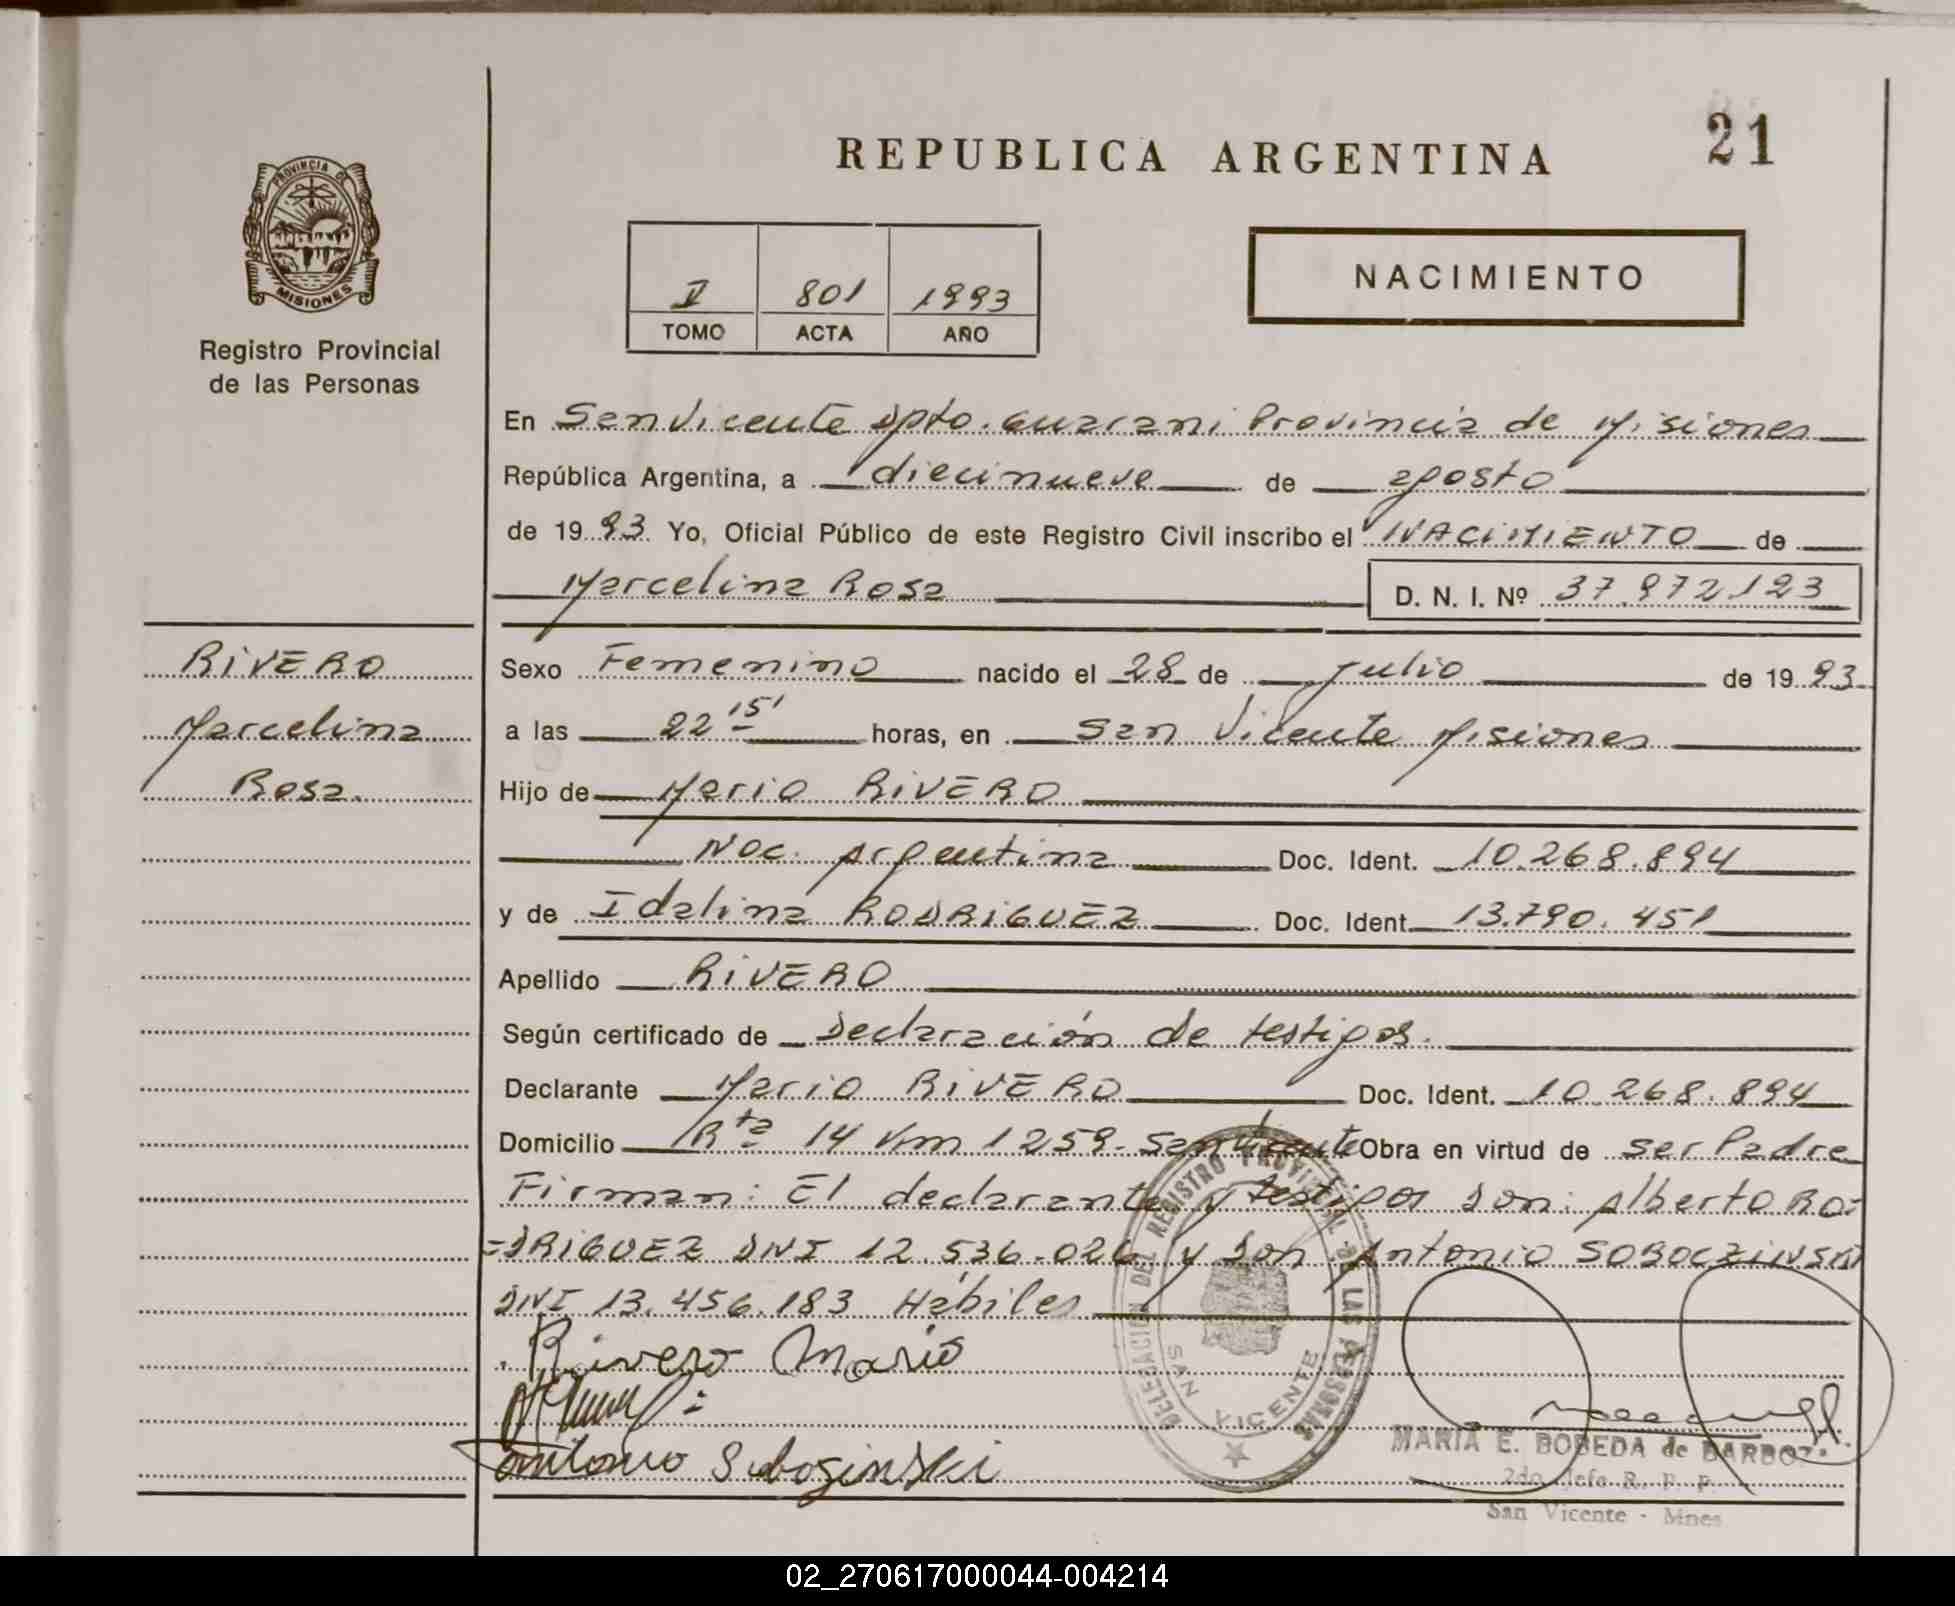 REPUBLICA ARGENTINA
21
PROVINCIA DE
MISIONES
Registro Provincial
de las Personas
I 801 1993
TOMO ACTA AÑO
NACIMIENTO
En San Vicente Dpto. Guarani Provincia de Misiones
República Argentina, a diecinueve de agosto
de 1993. Yo, Oficial Público de este Registro Civil inscribo el NACIMIENTO de
Marcelina Rosa D. N. I. Nº 37.972.123
RIVERO
Marcelina
Rosa.
Sexo Femenino nacido el 28 de julio de 1993
a las 22 15' horas, en San Vicente Misiones
Hijo de Mario RIVERO
Nac. Argentina Doc. Ident. 10.268.894
y de Idalina RODRIGUEZ Doc. Ident. 13.790.451
Apellido RIVERO
Según certificado de Declaración de testigos.
Declarante Mario RIVERO Doc. Ident. 10.268.894
Domicilio Rta 14 Km 1259- San Vicente Obra en virtud de ser Padre
Firman: El declarante y testigos Don: Alberto RO=
=DRIGUEZ DNI 12.536.026 y Don Antonio SOBOCZINSKI
DNI 13.456.183 Hábiles
Rivero Mario
Antonio Sobozinski
DELEGACION DEL REGISTRO PROVINCIAL DE LAS PERSONAS
SAN VICENTE
MARIA E. BOBEDA de BARBOZ
2do. Jefe R. P. P.
San Vicente - Mnes
02_270617000044-004214